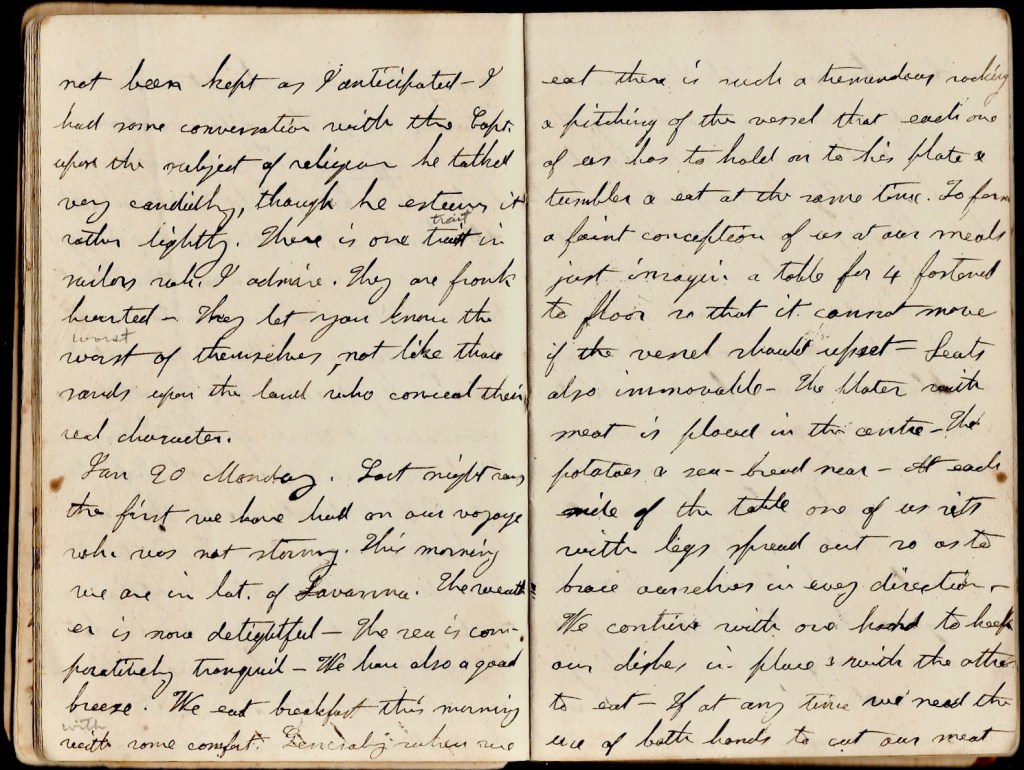 not been kept as I anticipated – I
had some conversation with the Capt.
upon the subject of religion he talked
very candidly, though he esteems it
rather lightly. There is one trait in
trait
sailors wh. I admire. They are frank
hearted – They let you know the
worst
worst of themselves, not like thou
sands upon the land who conceal their
real character.
Jan 20 Monday. Last night was
the first we have had on our voyage
wh. was not stormy. This morning
we are in lat. of Savanna. The weath
er is now delightful – The sea is com-
paratively tranquil – We have also a good
breeze. We eat breakfast this morning
with
with some comfort. Generally when we
eat there is such a tremendous rocking
& pitching of the vessel that each one
of us has to hold on to his plate &
tumbler & eat at the same time. To form
a faint conception of us at our meals
just imagin a table for 4 fastened
to floor so that it cannot move
if the vessel should upset – Seats
also immovable – The plater with
meat is placed in the centre – The
potatoes & sea-bread near – At each
side of the table one of us sits
with legs spread out so as to
brace ourselves in every direction –
We contrive with one hand to keep
our dishes in place & with the other
to eat – If at any time we need the
use of both hands to cut our meat